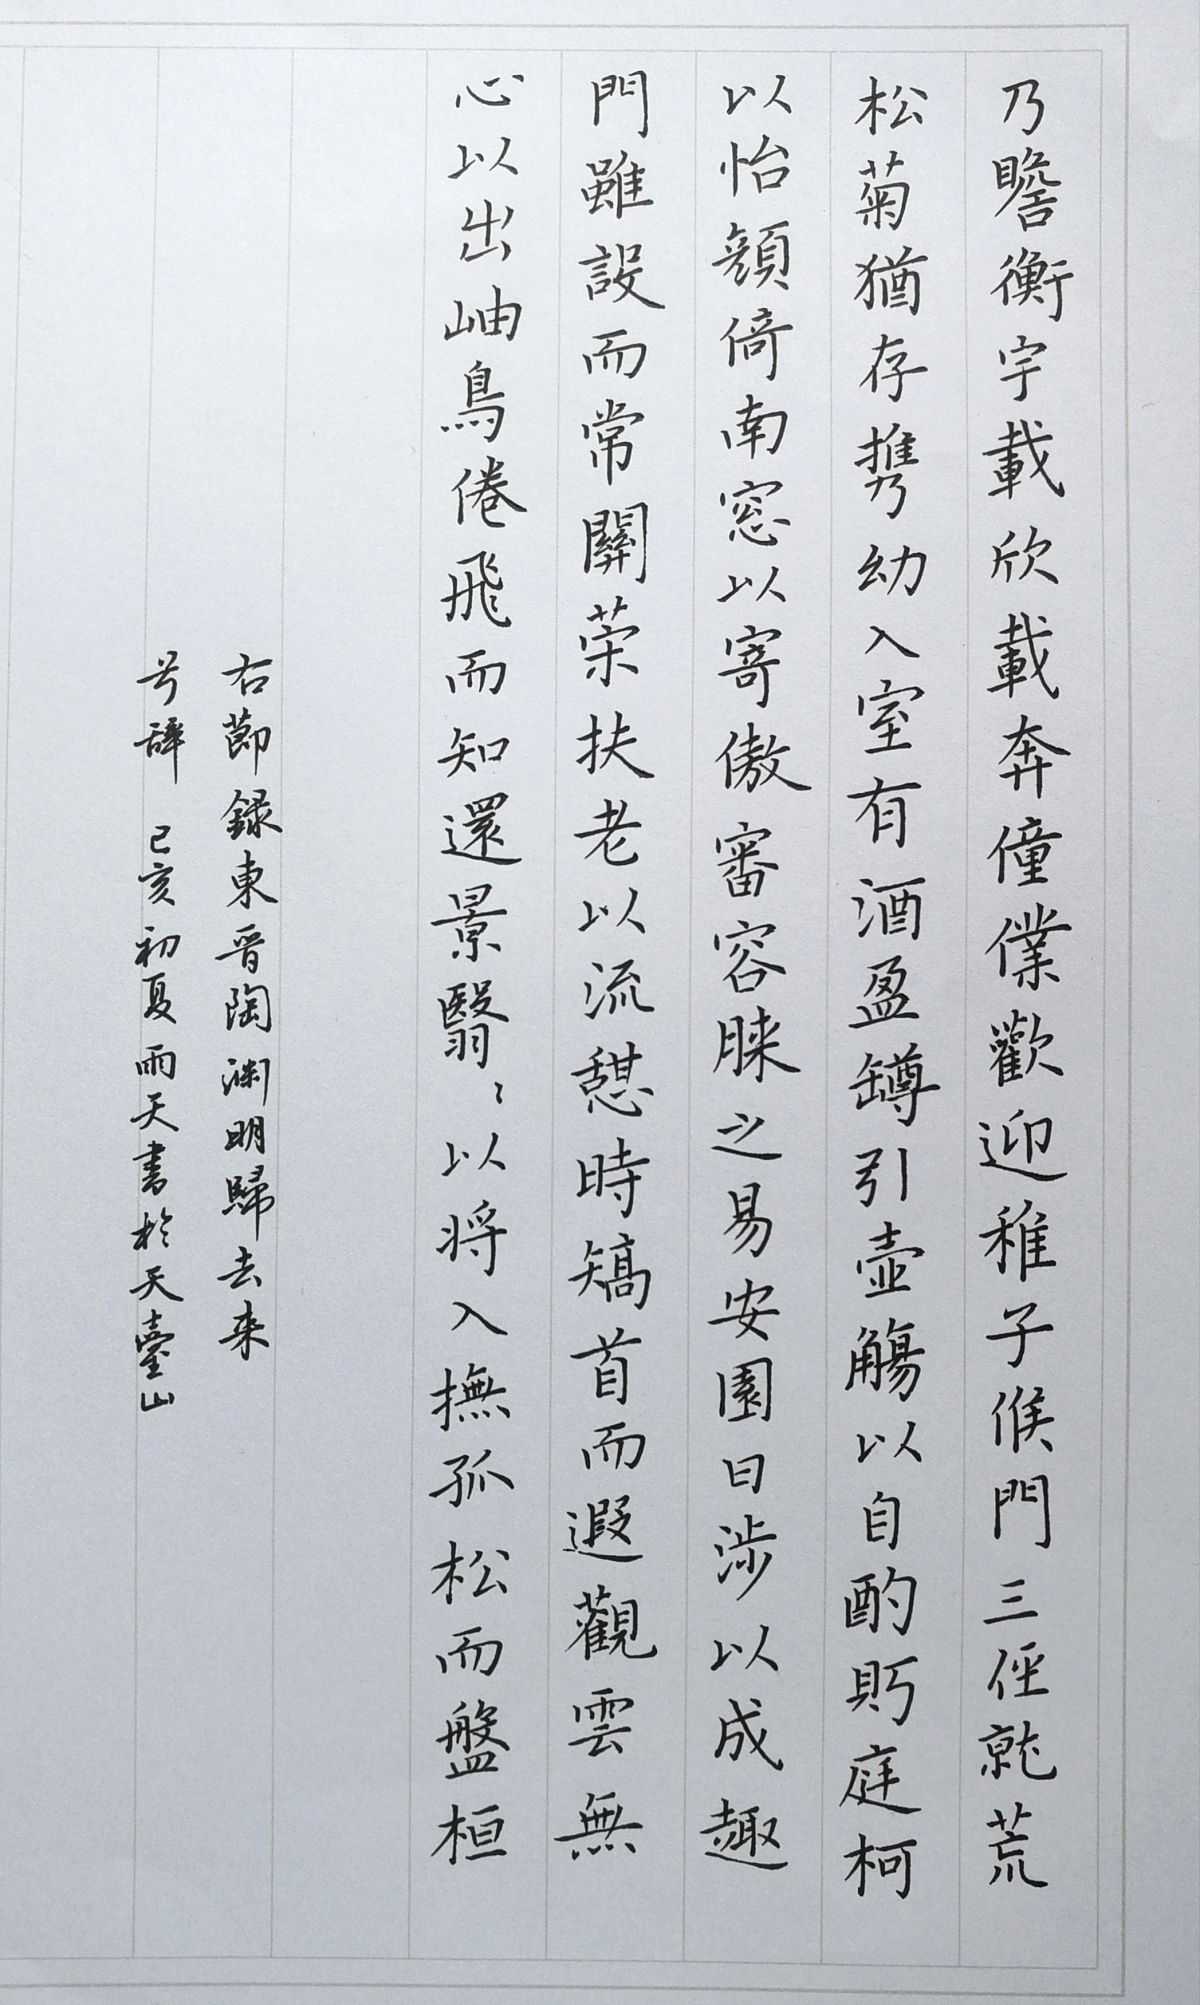 乃瞻衡宇載欣載奔僮僕歡迎稚子候門三径就荒
松菊猶存携幼入室有酒盈罇引壺觴以自酌眄庭柯
以怡顏倚南窓以寄傲審容膝之易安園日涉以成趣
門雖設而常關策扶老以流憩時矯首而遐觀雲無
心以出岫鳥倦飛而知還景翳〻以将入撫孤松而盤桓
右節録東晉陶渊明歸去来
兮辭 己亥初夏雨天書於天臺山